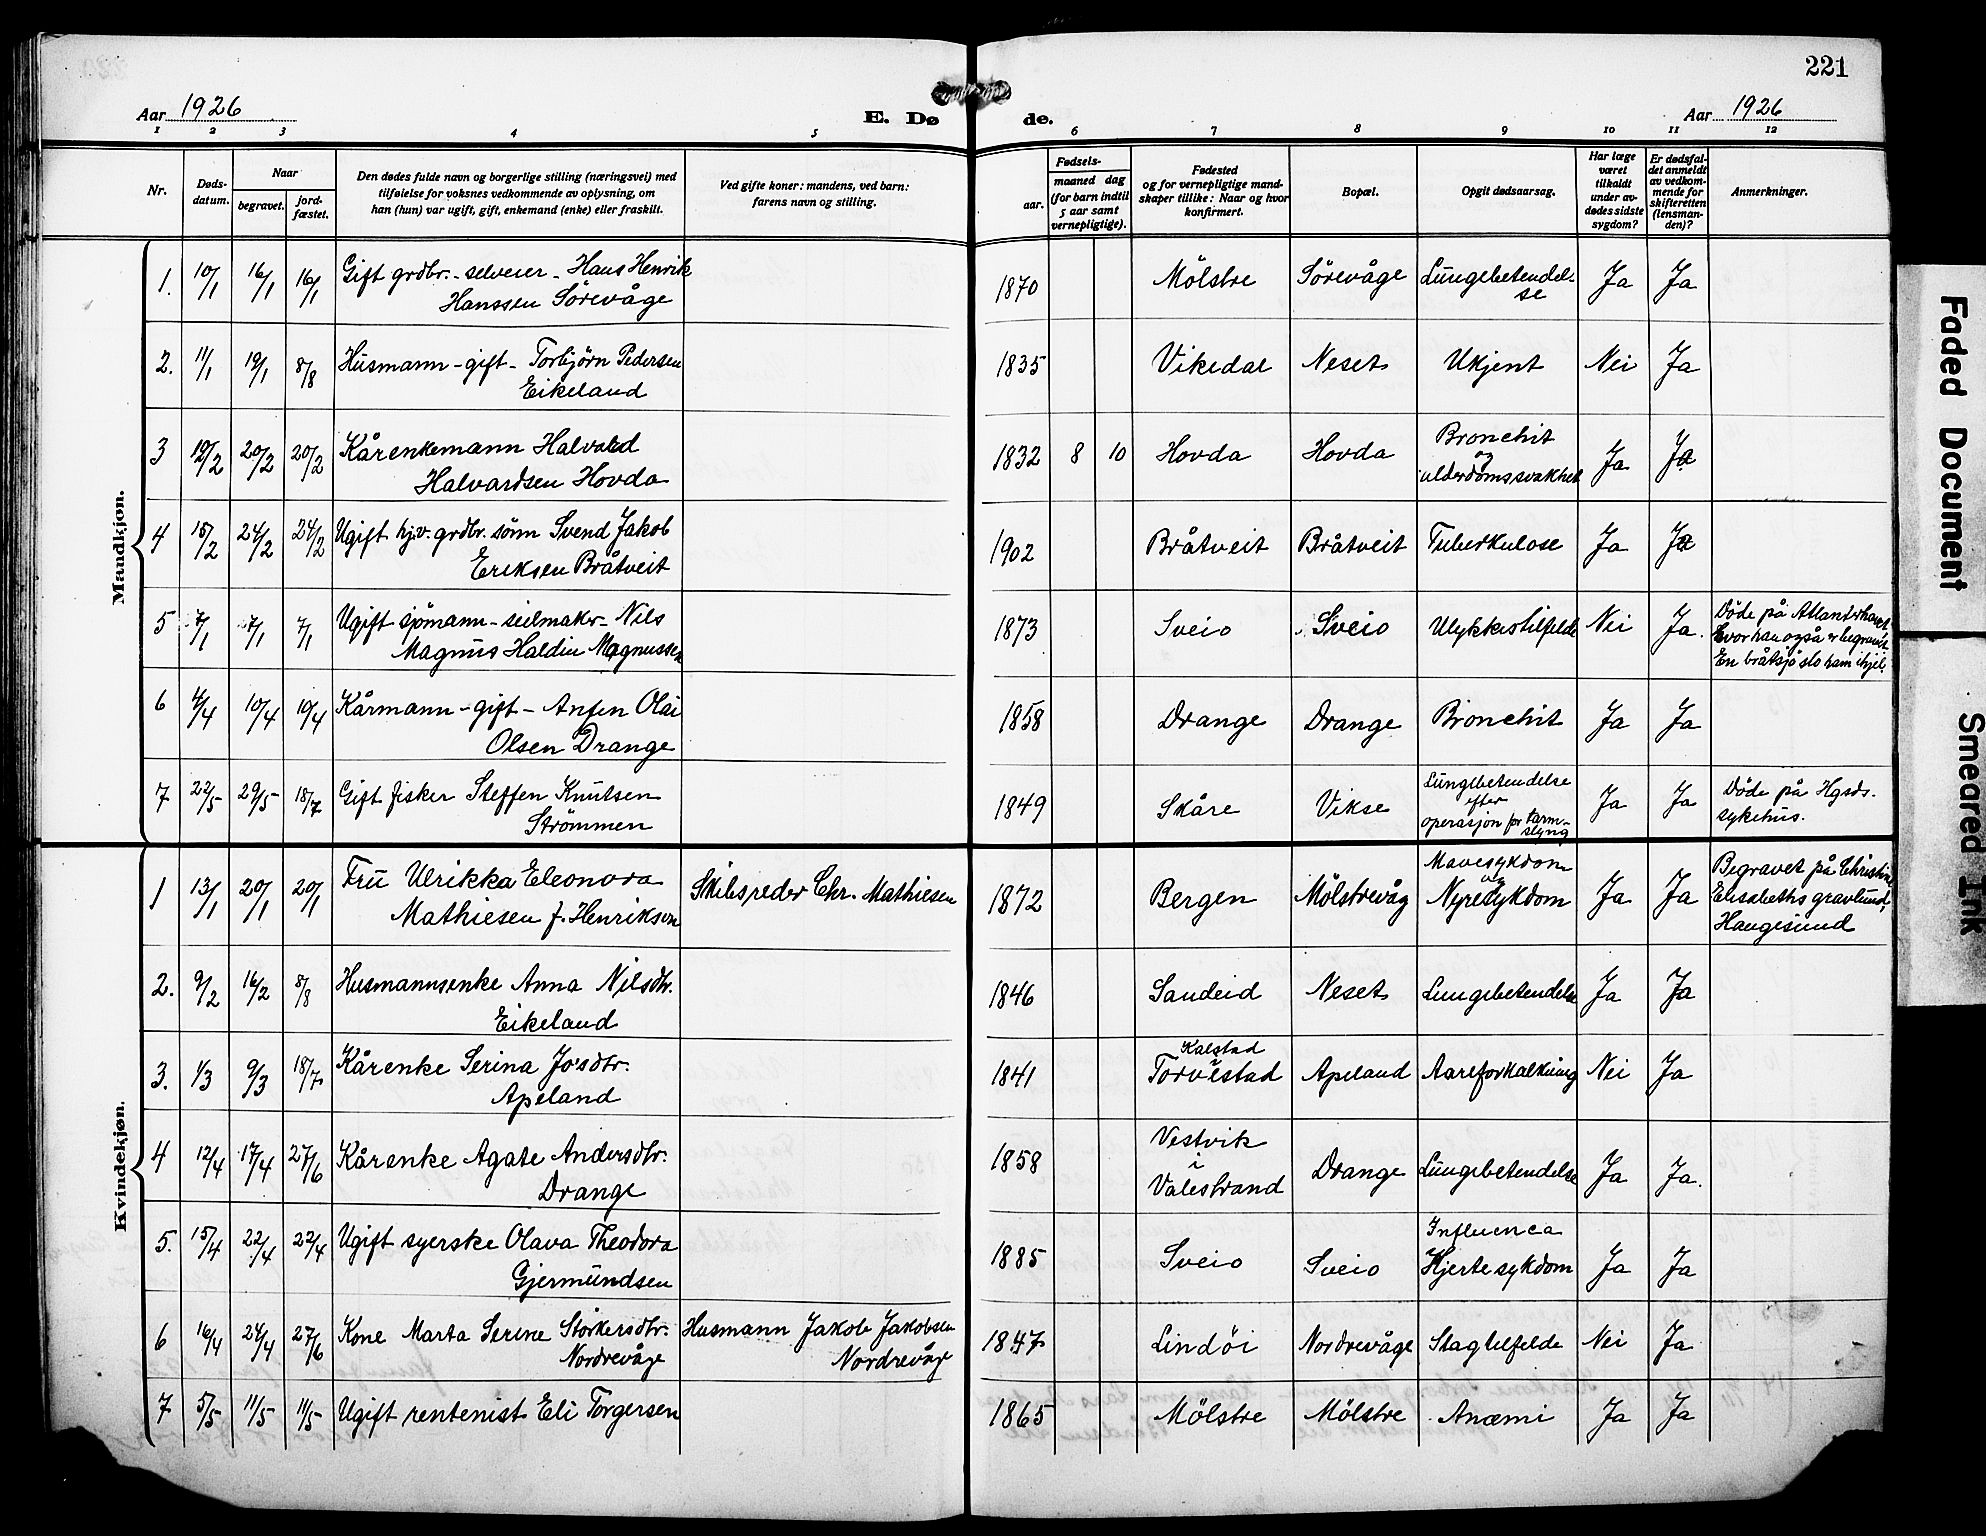 221
Aar 1926
E. Dø de.
Aar 1926
1 2 3 4 5 6 7 8 9 10 11 12
Nr.
Døds-
datum.
Naar
begravet.
jord-
fæstet.
Den dødes fulde navn og borgerlige stilling (næringsvei) med
tilføielse for voksnes vedkommende av oplysning, om
han (hun) var ugift, gift, enkemand (enke) eller fraskilt.
Ved gifte koner: mandens, ved barn:
farens navn og stilling.
Fødsels-
aar.
maaned dag
(for barn indtil
5 aar samt
vernepligtige).
Fødested
og for vernepligtige mand-
skaper tillike: Naar og hvor
konfirmert.
Bopæl.
Opgit dødsaarsag.
Har læge
været
tilkaldt
under av-
dødes sidste
sygdom?
Er dødsfal-
det anmeldt
av vedkom-
mende for
skifteretten
(lensman-
den)?
Anmerkninger.
Mandkjøn.
1. 10/1 16/1 16/1 Gift grdbr. - selveier - Hans Henrik
Hanssen Sörevåge
1870 Mölstre Sörevåge Lungebetendel-
se
Ja Ja
2. 11/1 19/1 8/8 Husmann - gift - Torbjörn Pedersen
Eikeland
1835 Vikedal Neset Ukjent Nei Ja
3 12/2 20/2 20/2 Kårenkemann Halvard
Halvardsen Hovda
1832 8 10 Hovda Hovda Bronchit
og
alderdomssvakhet
Ja Ja
4 15/2 24/2 24/2 Ugift hjv. grdbr. sönn Svend Jakob
Eriksen Bråtveit
1902 Bråtveit Bråtveit Tuberkulose Ja Ja
5 7/1 7/1 7/1 Ugift sjömann - seilmaker - Nils
Magnus Haldin Magnussen
1873 Sveio Sveio Ulykkestilfelde Nei Ja.
Döde på Atlanterhavet
hvor han også er begravet
En bråtsjö slo ham ihjel.
6 4/4 10/4 10/4 Kårmann - gift - Anfin Olai
Olsen Drange
1858 Drange Drange Bronchit Ja Ja
7 22/5 29/5 18/7 Gift fisker Steffen Knutsen
Strömmen
1849 Skåre Vikse Lungebetendelse
efter
operasjon for tarm-
slyng
Ja Ja Döde på Hgsds.
sykehus.
Kvindekjøn.
1 13/1 20/1 20/1 Fru Ulrikka Eleonora
Mathiesen f. Henriksen
Skibsreder Chr. Mathiesen
1872 Bergen Mölstrevåg Mavesykdom
og
Nyresykdom
Ja Ja Begravet på Christine
Elisabeths gravlund,
Haugesund
2. 9/2 16/2 8/8 Husmannsenke Anna Nilsdtr.
Eikeland
1846 Sandeid Neset Lungebetendelse Ja Ja
3. 1/3 9/3 18/7 Kårenke Serina Jo'sdtr.
Apeland
1841 Kalstad
i
Torvestad Apeland Aareforkalkning Nei Ja
4 12/4 17/4 27/6 Kårenke Agate Andersdtr.
Drange
1858 Vestvik
i
Valestrand
Drange Lungebetendelse Ja Ja.
5. 15/4 22/4 22/4 Ugift syerske Olava Theodora
Gjermundsen
1885 Sveio Sveio Influenca
Hjertesykdom Ja Ja
6 16/4 24/4 27/6 Kone Marta Serine Störkersdtr.
Nordrevåge
Husmann Jakob Jakobsen
Nordrevåge
1847 Lindöi Nordrevåge Slagtilfelde Nei Ja
7 5/5 11/5 11/5 Ugift rentenist Eli Torgersen
1865 Mölstre Mölstre Anæmi Ja Ja
Faded Document
Smeared Ink